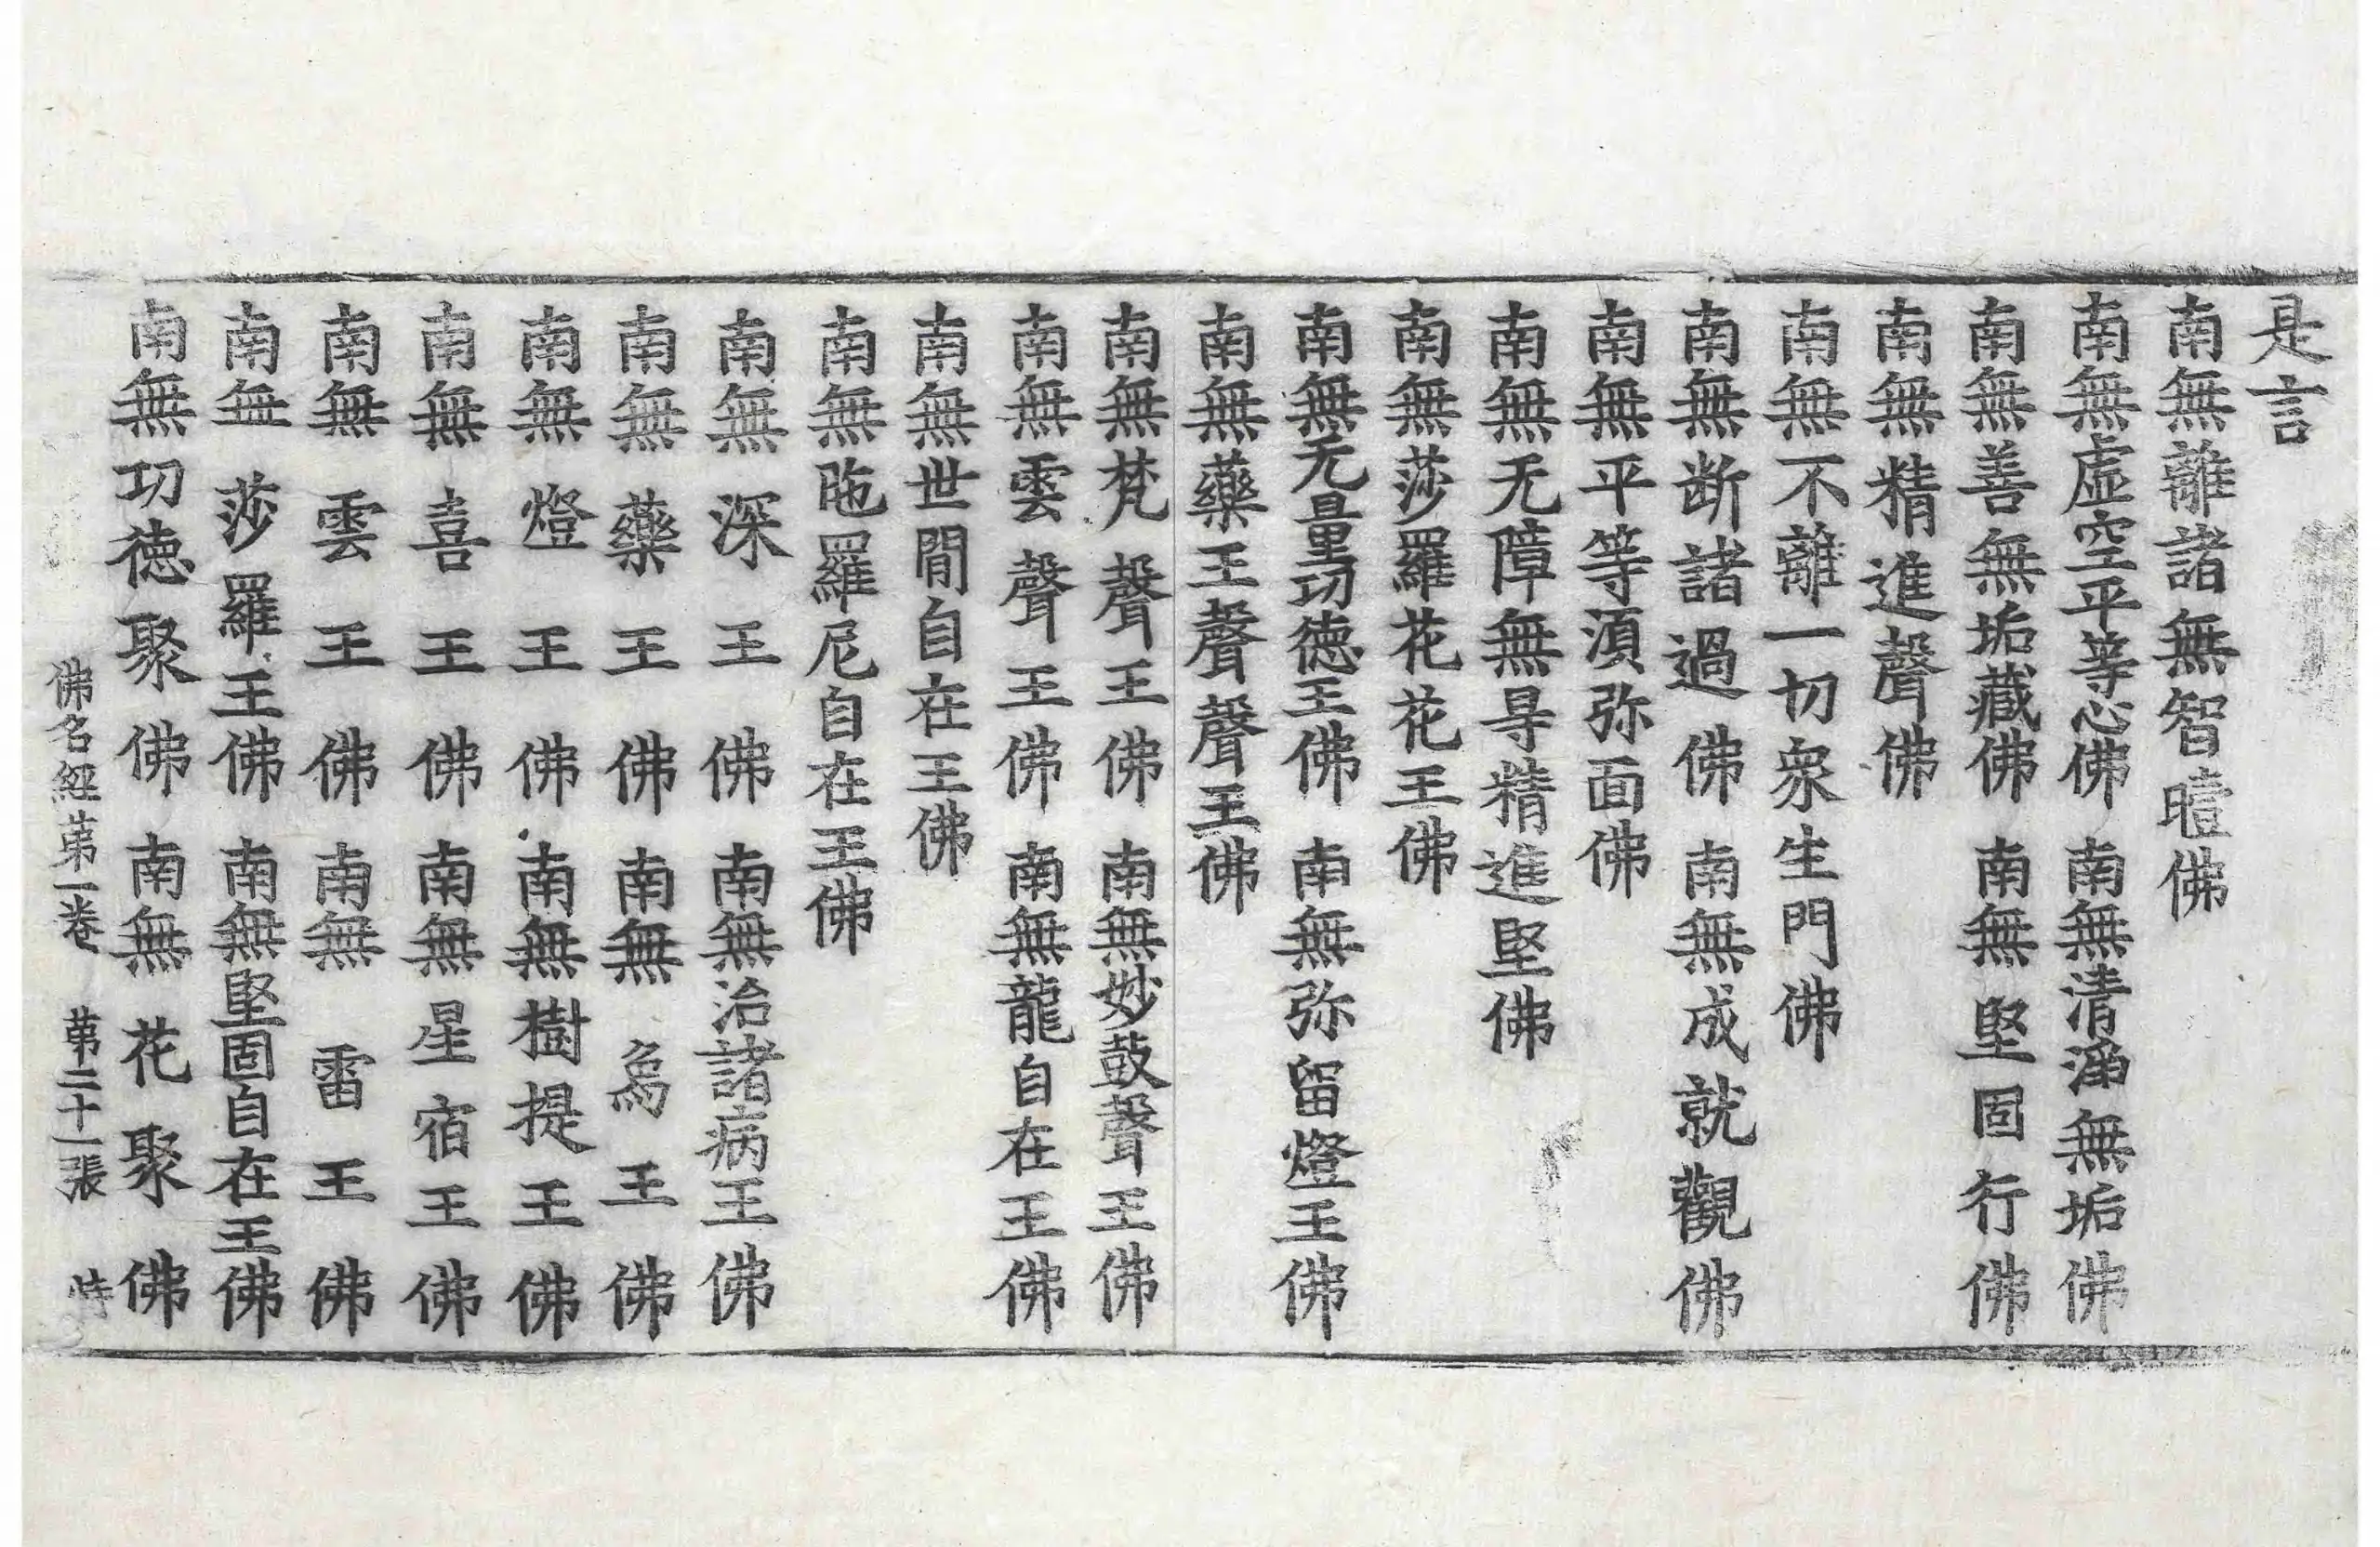 是言
南無離諸無智曀佛
南無虛空平等心佛 南無清淨無垢佛
南無善無垢藏佛 南無堅固行佛
南無精進聲佛
南無不離一切衆生門佛
南無断諸過佛 南無成就觀佛
南無平等湏弥面佛
南無无障無㝵精進堅佛
南無莎羅花花王佛
南無无量功德王佛 南無弥留燈王佛
南無藥王聲聲王佛
南無梵聲王佛 南無妙鼓聲王佛
南無雲聲王佛 南無龍自在王佛
南無世間自在王佛
南無陁羅尼自在王佛
南無深王佛 南無治諸病王佛
南無藥王佛 南無烏王佛
南無燈王佛 南無樹提王佛
南無喜王佛 南無星宿王佛
南無雲王佛 南無雷王佛
南無莎羅王佛 南無堅固自在王佛
南無功德聚佛 南無花聚佛
佛名經第一卷 第二十一張